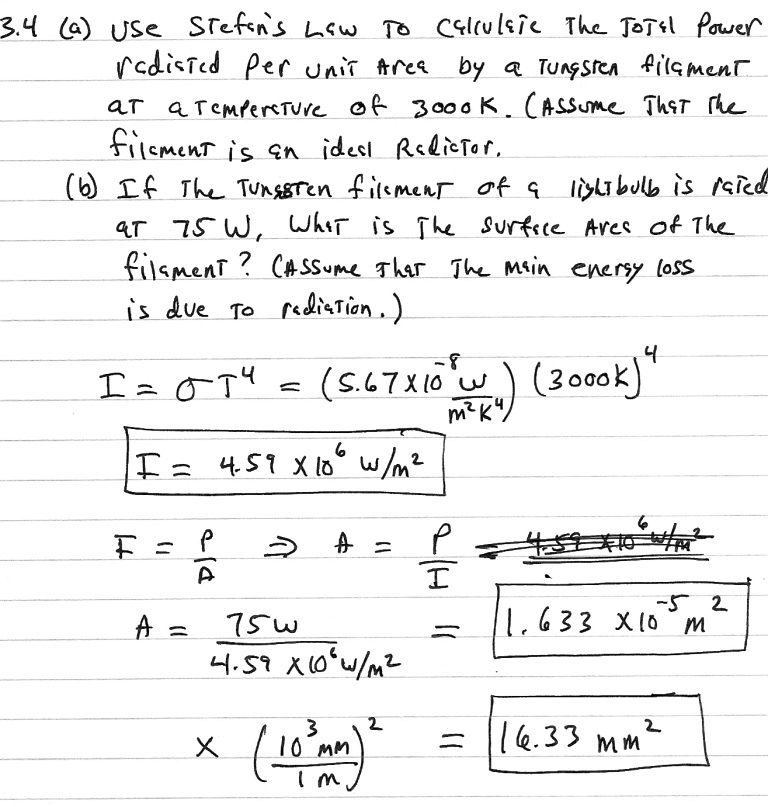 3.4 (a) Use Stefan's Law to calculate the total power
radiated per unit area by a Tungsten filament
at a temperature of 3000K. (Assume that the
filament is an ideal Radiator.
(b) If the Tungsten filament of a lightbulb is rated
at 75 W, what is the surface area of the
filament? (Assume that the main energy loss
is due to radiation.)
I = σT⁴ = (5.67 x 10⁻⁸ W/m²K⁴) (3000K)⁴
I = 4.59 x 10⁶ W/m²
I = P/A ⇒ A = P/I = 4.59 x 10⁶ W/m²
A = 75W / 4.59 x 10⁶ W/m² = 1.633 x 10⁻⁵ m²
x (10³ mm / 1 m)² = 16.33 mm²